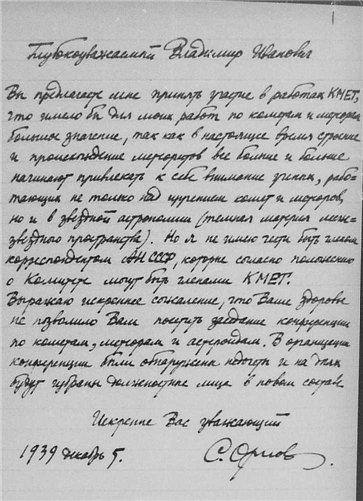 Глубокоуважаемый Владимир Иванович
Вы предлагаете мне принять участие в работах КМЕТ,
что имело бы для моих работ по кометам и метеорам
большое значение, так как в настоящее время строение
и происхождение метеоритов все больше и больше
начинают привлекать к себе внимание ученых, рабо-
тающих не только над изучением комет и метеоров,
но и в звездной астрономии (темная материя меж-
звездного пространства). Но я не имею чести быть членом
корреспондентом АН СССР, которые согласно положению
о Комитете могут быть членами КМЕТ.
Выражаю искреннее сожаление, что Ваше здоровье
не позволило Вам посетить заседание конференции
по кометам, метеорам и астероидам. В организации
конференции были обнаружены недочеты и на днях
будут избраны должностные лица в новом составе
Искренне Вас уважающий
1939 декабрь 5. С. Орлов.